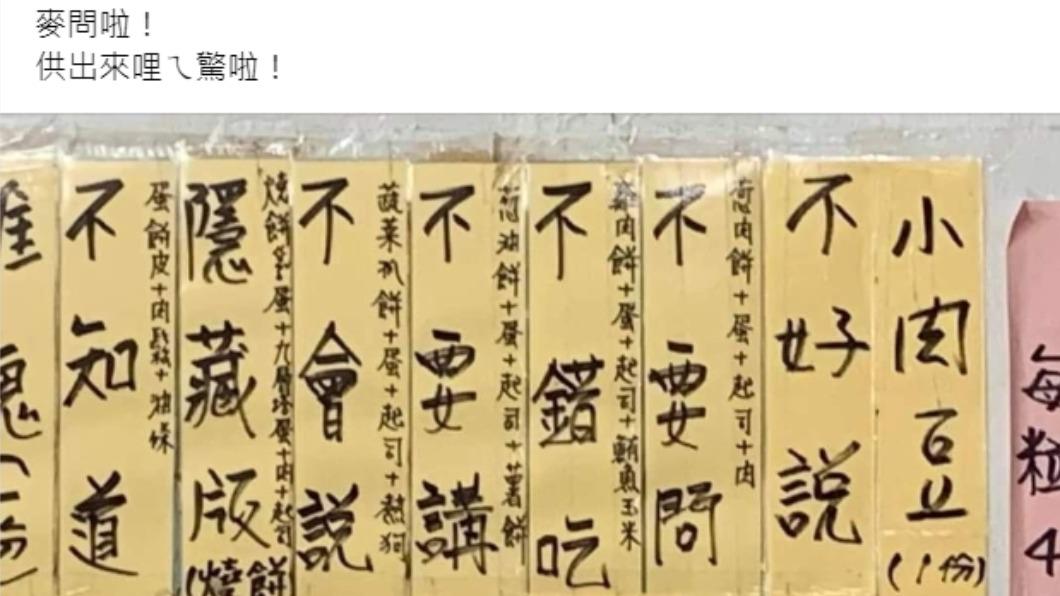 麥問啦！
供出來哩ㄟ驚啦！
每粒4
小肉豆(1份)
不好說
蔥肉餅+蛋+起司+肉
不要問
雞肉餅+蛋+起司+鮪魚玉米
不錯吃
蔥油餅+蛋+起司+薯餅
不要講
蔬菜抓餅+蛋+起司+熱狗
不會說
燒餅夾蛋+九層塔蛋+肉+起司
隱藏版(燒餅
蛋餅皮+肉鬆+油條
不知道